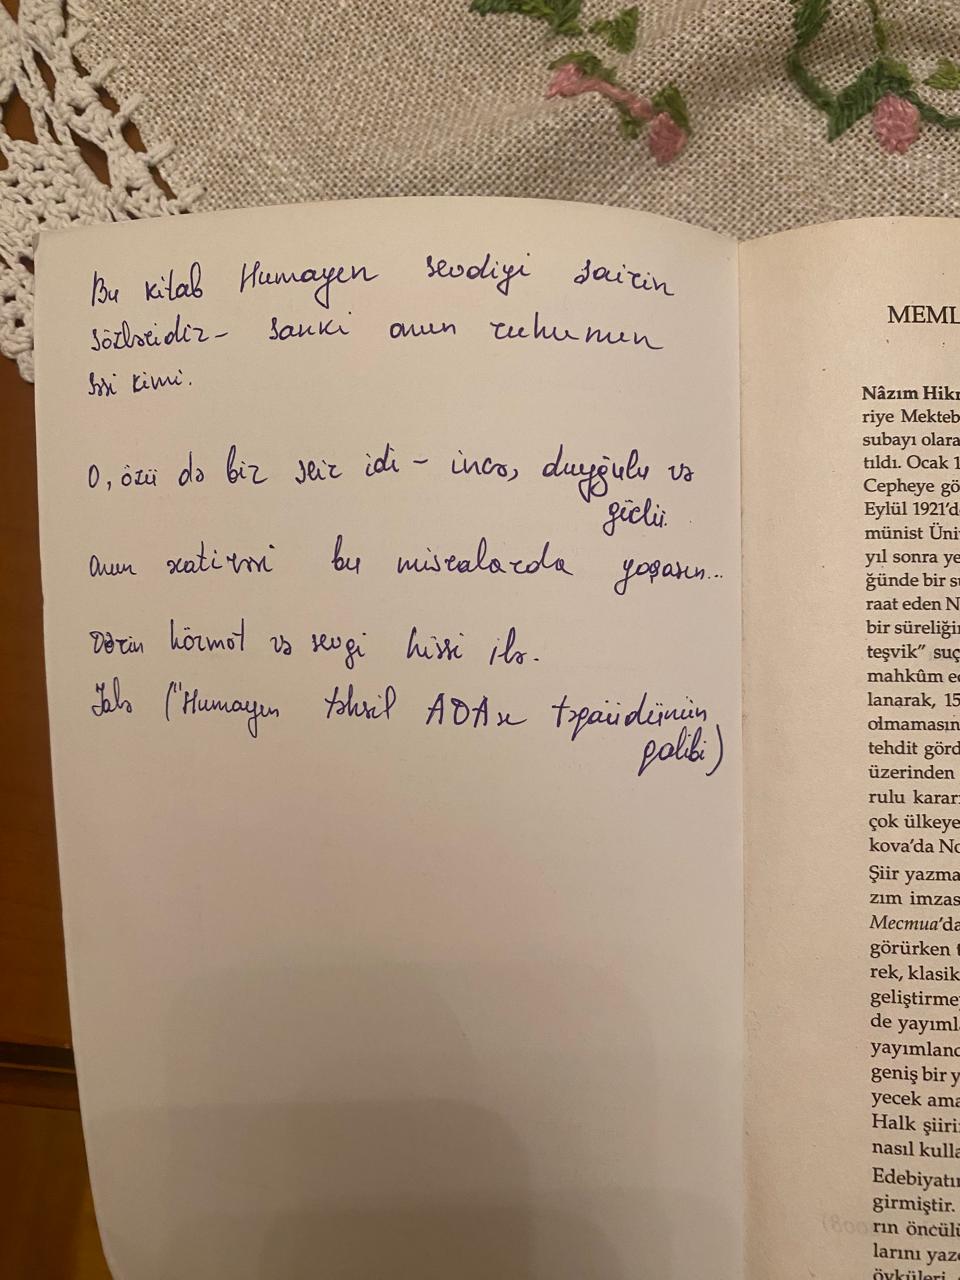 Bu kitab Humayen sevdiyi şairin
sözləridir - sanki onun ruhunun
səsi kimi.
O, özü də bir şeir idi - incə, duyğulu və
güclü.
Onun xatirəsi bu misralarda yaşasın...
Dərin hörmət və sevgi hissi ilə.
("Humayın təhsil ADAx təqaüdünün
qalibi)
MEML
Nâzım Hikm
riye Mekteb
subayı olara
tıldı. Ocak 1
Cepheye gö
Eylül 1921'd
münist Üni
yıl sonra ye
ğünde bir s
raat eden N
bir süreliği
teşvik" suç
mahkûm e
lanarak, 15
olmamasın
tehdit görd
üzerinden
rulu karar
çok ülkeye
kova'da No
Şiir yazma
zım imzas
Mecmua'da
görürken t
rek, klasik
geliştirme
de yayıml
yayımland
geniş bir y
yecek ama
Halk şiiri
nasıl kulla
Edebiyatı
girmiştir.
rın öncülü
larını yaz
öyküleri